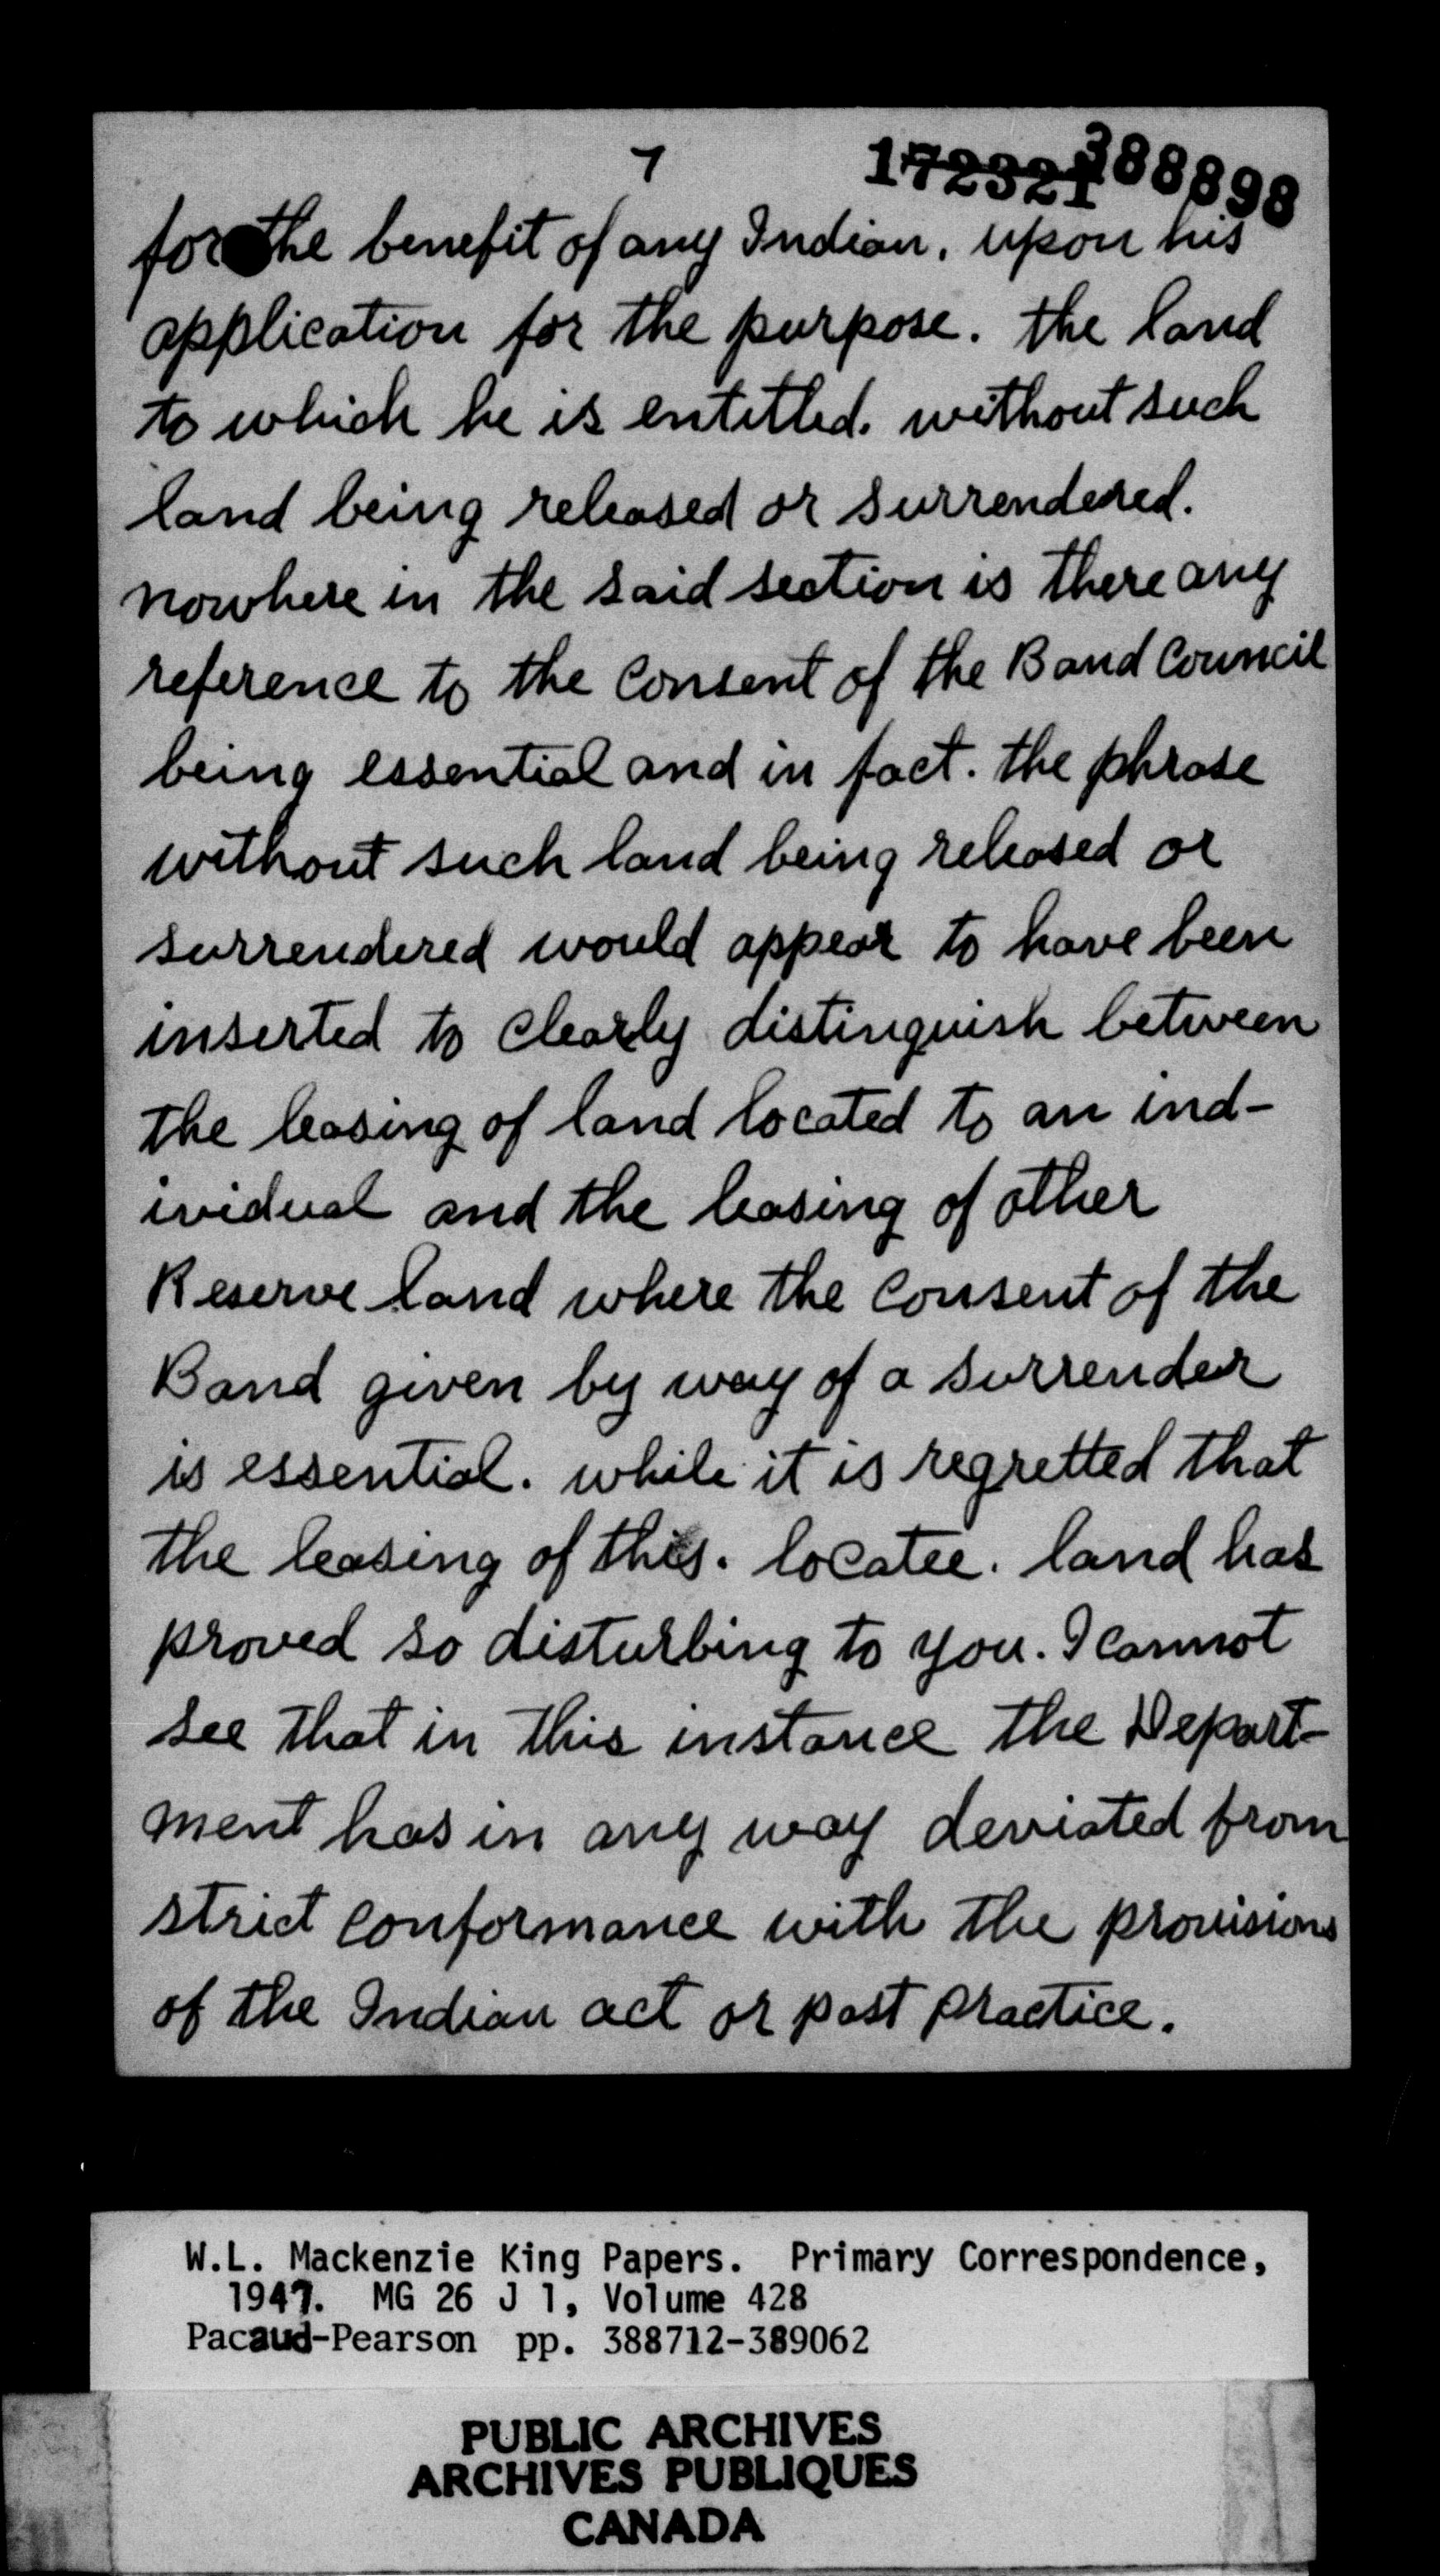 7
172321 388898
for the benefit of any Indian. upon his
application for the purpose. the land
to which he is entitled. without such
land being released or surrendered.
nowhere in the said section is there any
reference to the consent of the Band Council
being essential and in fact. the phrase
without such land being released or
surrendered would appear to have been
inserted to clearly distinguish between
the leasing of land located to an ind-
ividual and the leasing of other
Reserve land where the consent of the
Band given by way of a surrender
is essential. while it is regretted that
the leasing of this. locatee. land has
proved so disturbing to you. I cannot
see that in this instance the Depart-
ment has in any way deviated from
strict conformance with the provisions
of the Indian act or past practice.
W.L. Mackenzie King Papers. Primary Correspondence,
1947. MG 26 J 1, Volume 428
Pacaud-Pearson pp. 388712-389062
PUBLIC ARCHIVES
ARCHIVES PUBLIQUES
CANADA